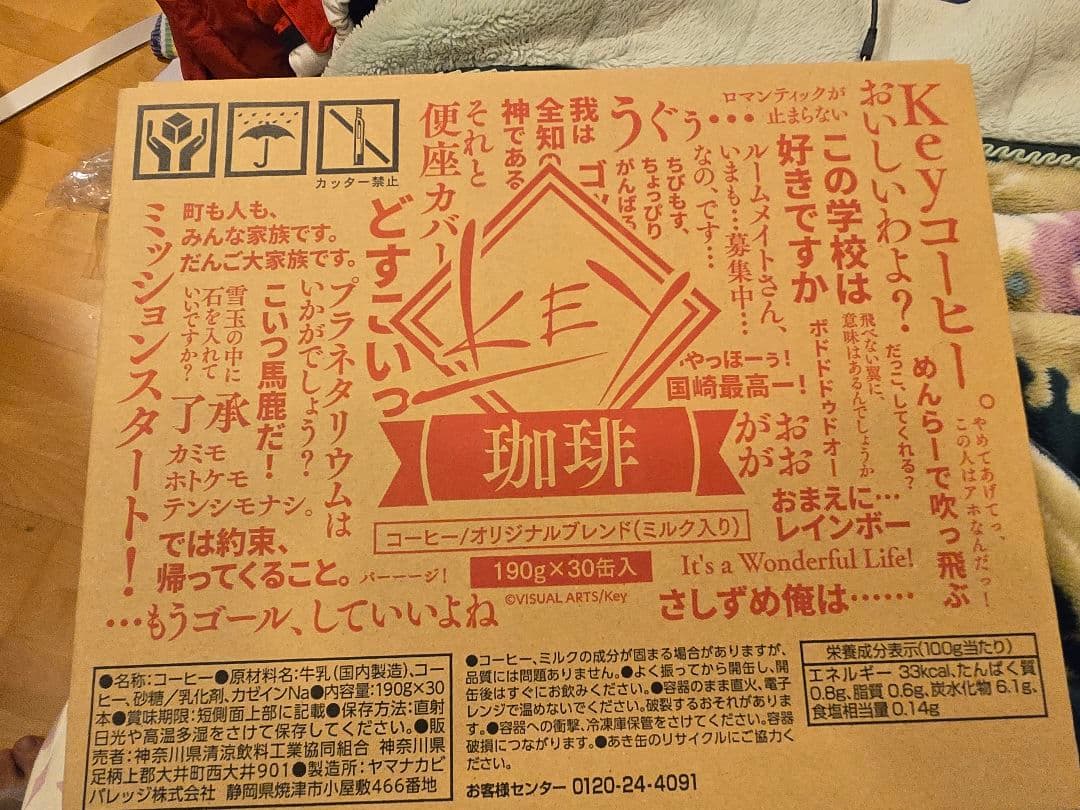 カッター禁止
Keyコーヒー。
おいしいわよ?
ロマンティックが
止まらない
この学校は
好きですか
うぐぅ…
我は
全知の
神である
それと
便座カバー
ちびもす、
ちょっぴり
がんばる
なの、です…
ルームメイトさん、
いまも…募集中…
町も人も、
みんな家族です。
だんご大家族です。
どすこいっ
ミッションスタート!
雪玉の中に
石を入れて
いいですか?
こいつ馬鹿だ!
プラネタリウムは
いかがでしょう?
了承
カミモ
ホトケモ
テンシモナシ。
では約束、
帰ってくること。
パーーージ!
…もうゴール、していいよね
KEY
珈琲
コーヒー/オリジナルブレンド(ミルク入り)
190g×30缶入
©VISUAL ARTS/Key
やっほーぅ!
国崎最高ー!
ボドドドゥドオー
飛べない翼に、
意味はあるんでしょうか
だっこしてくれる?
めんらーで吹っ飛ぶ
やめてあげてっ、
この人はアホなんだっ!
がおがお
おまえに…
レインボー
It's a Wonderful Life!
さしずめ俺は……
●名称:コーヒー●原材料名:牛乳(国内製造)、コー
ヒー、砂糖/乳化剤、カゼインNa●内容量:190g×30
本●賞味期限:短側面上部に記載●保存方法:直射
日光や高温多湿をさけて保存してください。●販
売者:神奈川県清涼飲料工業協同組合 神奈川県
足柄上郡大井町西大井901●製造所:ヤマナカビ
バレッジ株式会社 静岡県焼津市小屋敷466番地
●コーヒー、ミルクの成分が固まる場合がありますが、
品質には問題ありません。●よく振ってから開缶し、開
缶後はすぐにお飲みください。●容器のまま直火、電子
レンジで温めないでください。破裂するおそれがありま
す。●容器への衝撃、冷凍庫保管をさけてください。容器
破損につながります。●あき缶のリサイクルにご協力く
ださい。
お客様センター 0120-24-4091
栄養成分表示(100g当たり)
エネルギー 33kcal、たんぱく質
0.8g、脂質 0.6g、炭水化物 6.1g、
食塩相当量 0.14g